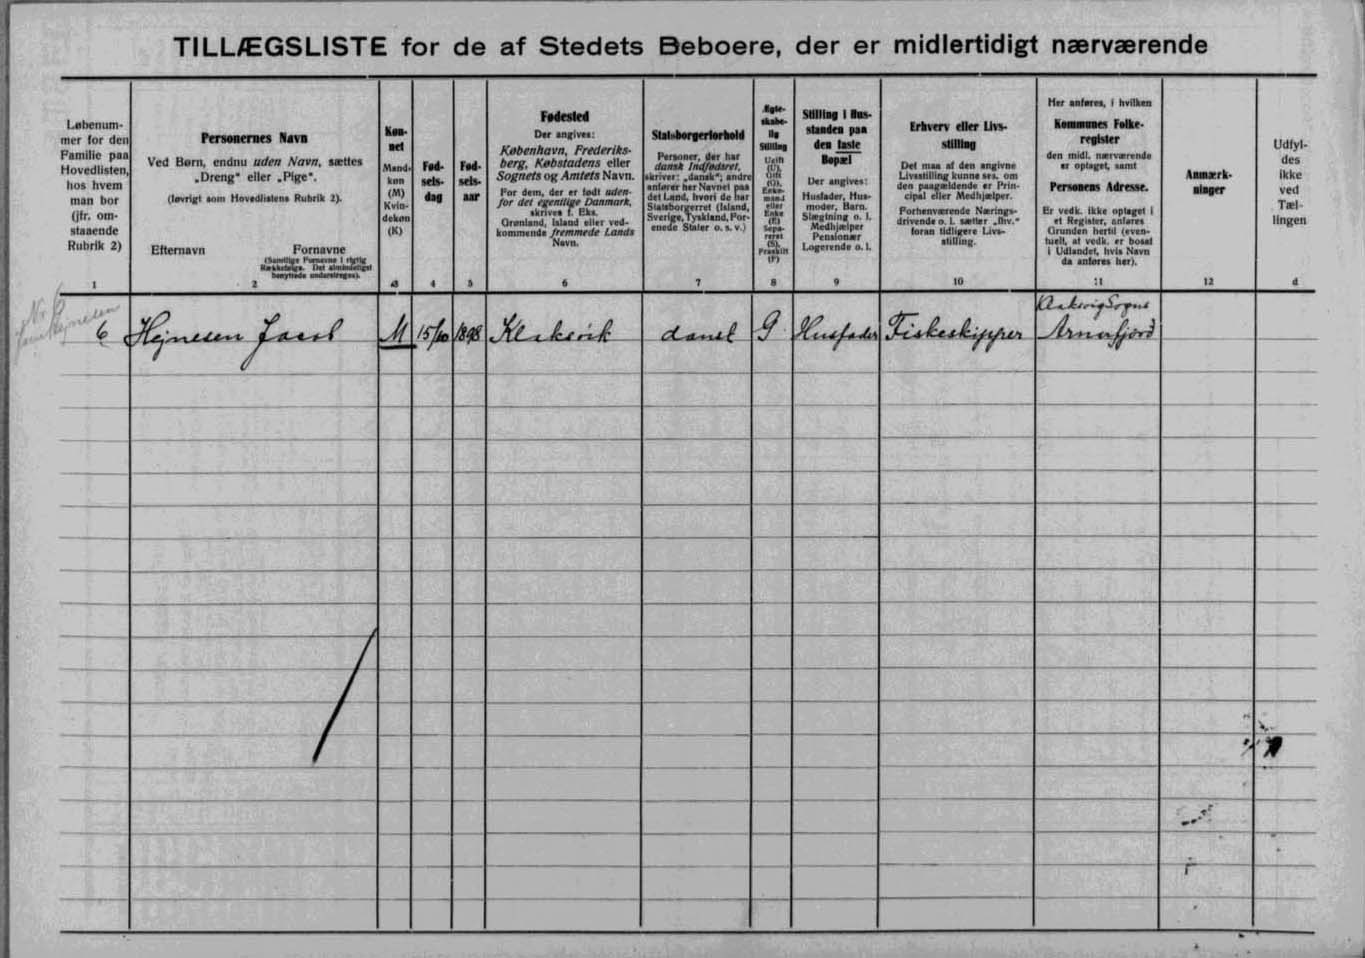 TILLÆGSLISTE for de af Stedets Beboere, der er midlertidigt nærværende
Løbenum-
mer for den
Familie paa
Hovedlisten,
hos hvem
man bor
(jfr. om-
staaende
Rubrik 2)
1
Personernes Navn
Ved Børn, endnu uden Navn, sættes
„Dreng“ eller „Pige“.
(Iøvrigt som Hovedlistens Rubrik 2).
Efternavn Fornavne
(Samtlige Fornavne i rigtig
Rækkefølge. Det almindeligst
benyttede understreges).
2
Køn-
net
Mand-
køn
(M)
Kvin-
dekøn
(K)
3
Fød-
sels-
dag
4
Fød-
sels-
aar
5
Fødested
Der angives:
København, Frederiks-
berg, Købstadens eller
Sognets og Amtets Navn.
For dem, der er født uden-
for det egentlige Danmark,
skrives f. Eks.
Grønland, Island eller ved-
kommende fremmede Lands
Navn.
6
Statsborgerforhold
Personer, der har
dansk Indfødsret,
skriver: „dansk“; andre
anfører her Navnet paa
det Land, hvori de har
Statsborgerret (Island,
Sverige, Tyskland, For-
enede Stater o. s. v.)
7
Ægte-
skabe-
lig
Stilling
Ugift
(U),
Gift
(G),
Enke-
mand
eller
Enke
(E)
Sepa-
reret
(S),
Fraskilt
(F)
8
Stilling i Hus-
standen paa
den faste
Bopæl
Der angives:
Husfader, Hus-
moder, Barn.
Slægtning o. l.
Medhjælper
Pensionær
Logerende o. l.
9
Erhverv eller Livs-
stilling
Det maa af den angivne
Livsstilling kunne ses, om
den paagældende er Prin-
cipal eller Medhjælper.
Forhenværende Nærings-
drivende o. l. sætter „fhv.“
foran tidligere Livs-
stilling.
10
Her anføres, i hvilken
Kommunes Folke-
register
den midl. nærværende
er optaget, samt
Personens Adresse.
Er vedk. ikke optaget i
et Register, anføres
Grunden hertil (even-
tuelt, at vedk. er bosat
i Udlandet, hvis Navn
da anføres her).
11
Anmærk-
ninger
12
Udfyl-
des
ikke
ved
Tæl-
lingen
d
6 Hejnesen Jacob M 15/10 1898 Klaksvik dansk G Husfader Fiskeskipper Arnefjord